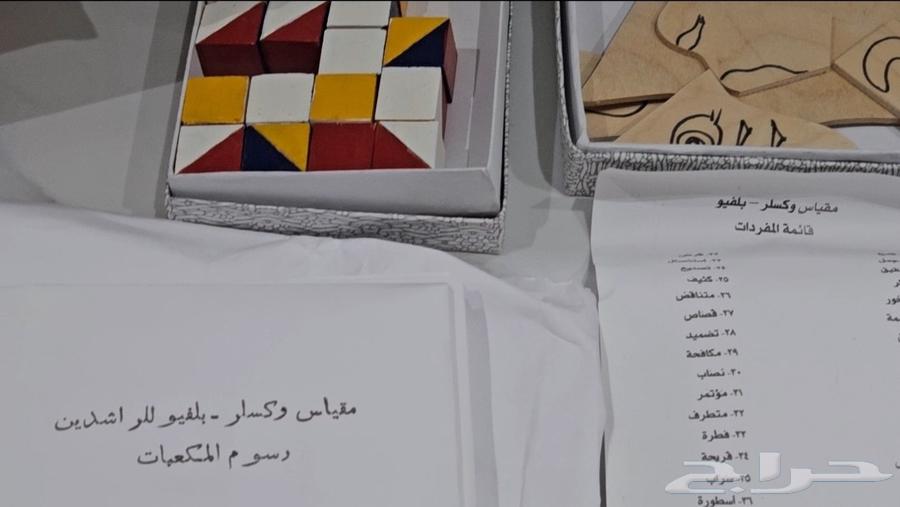 مقياس وكسلر - بلفيو
قائمة المفردات
٢٥- كثيف
٢٦- متناقض
٢٧- قصاص
٢٨- تضميد
٢٩- مكافحة
٣٠- نصاب
٣١- مؤتمر
٣٢- متطرف
٣٣- فطرة
٣٤- قريحة
٣٥- سراب
٣٦- اسطورة
مقياس وكسلر - بلفيو للراشدين
رسوم المكعبات
حراج